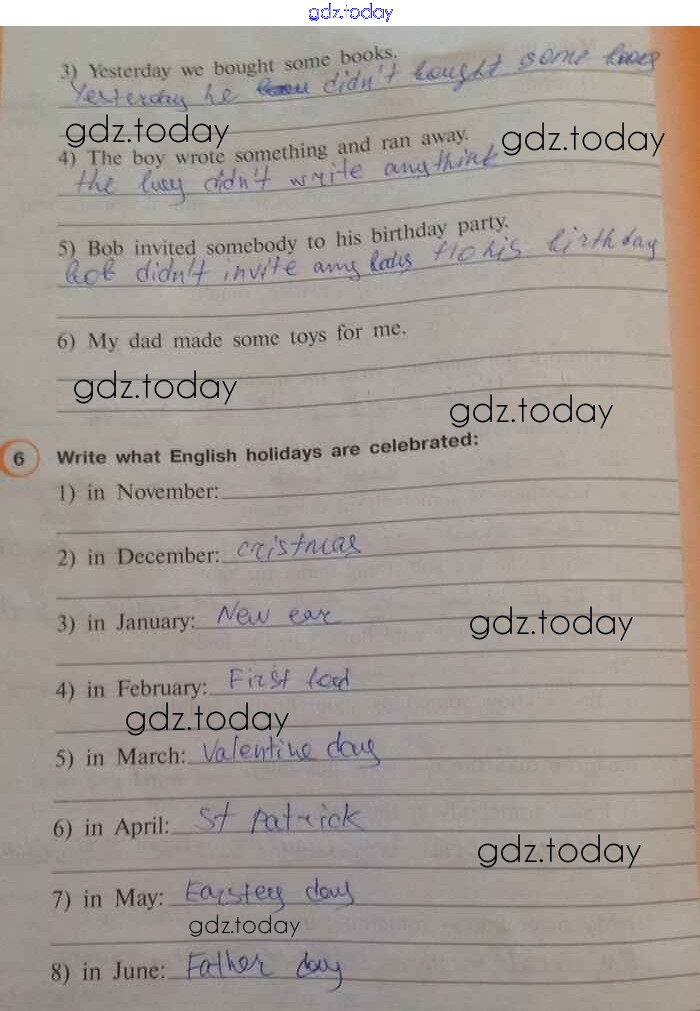 gdz.today
3) Yesterday we bought some books.
Yesterday he didn't bought some
gdz.today
gdz.today
4) The boy wrote something and ran away.
the didn't write anythink
5) Bob invited somebody to his birthday party.
bob didn't invite any his birthday
6) My dad made some toys for me.
gdz.today
gdz.today
6 Write what English holidays are celebrated:
1) in November:
2) in December: cristmas
3) in January: New ear
gdz.today
4) in February: First
gdz.today
5) in March: Valentine day
6) in April: St Patrick
gdz.today
7) in May: day
gdz.today
8) in June: Father day